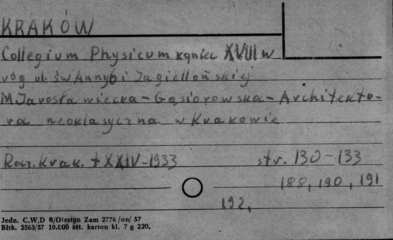 KRAKÓW
Collegium Physicum koniec XVIII w
róg ul. św Anny i Jagiellońskiej
M Jarosławiecka-Gąsiorowska - Architektu-
ra neoklasyczna w Krakowie
Rocz. Krak. t XXIV-1933 str. 130-133
188, 190, 191
192,
Jedn. C.W.D Zam 2776 /on/ 57
Bltk. 2563/57 10.000 szt. karton kl. 7 g 220.